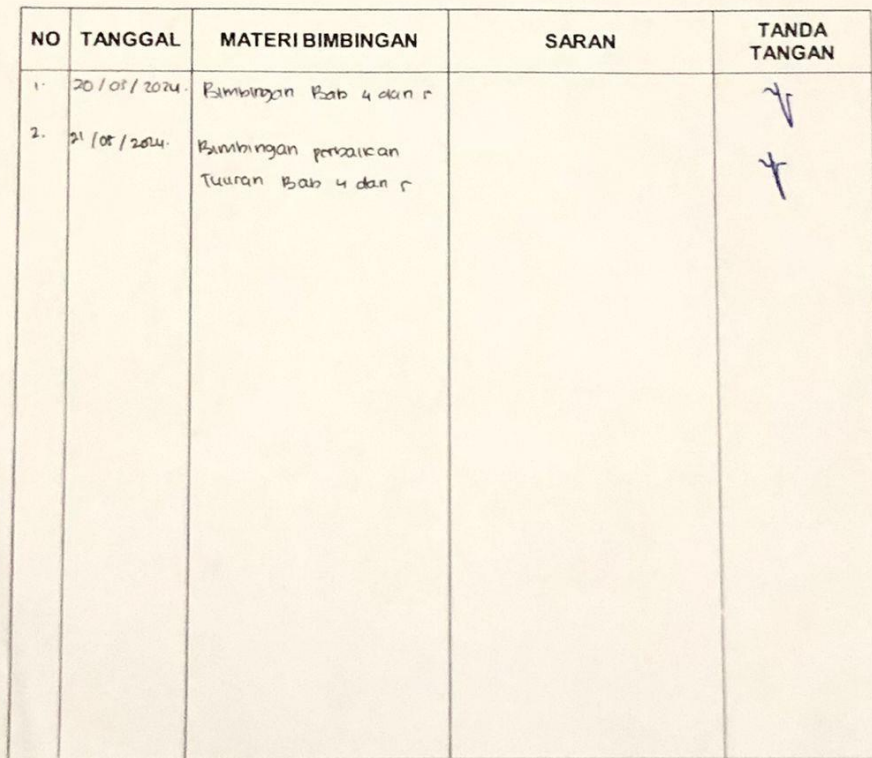 NO TANGGAL MATERI BIMBINGAN SARAN TANDA TANGAN
1. 20/05/2024. Bimbingan Bab 4 dan 5
2. 21/05/2024. Bimbingan perbaikan
Tulisan Bab 4 dan 5